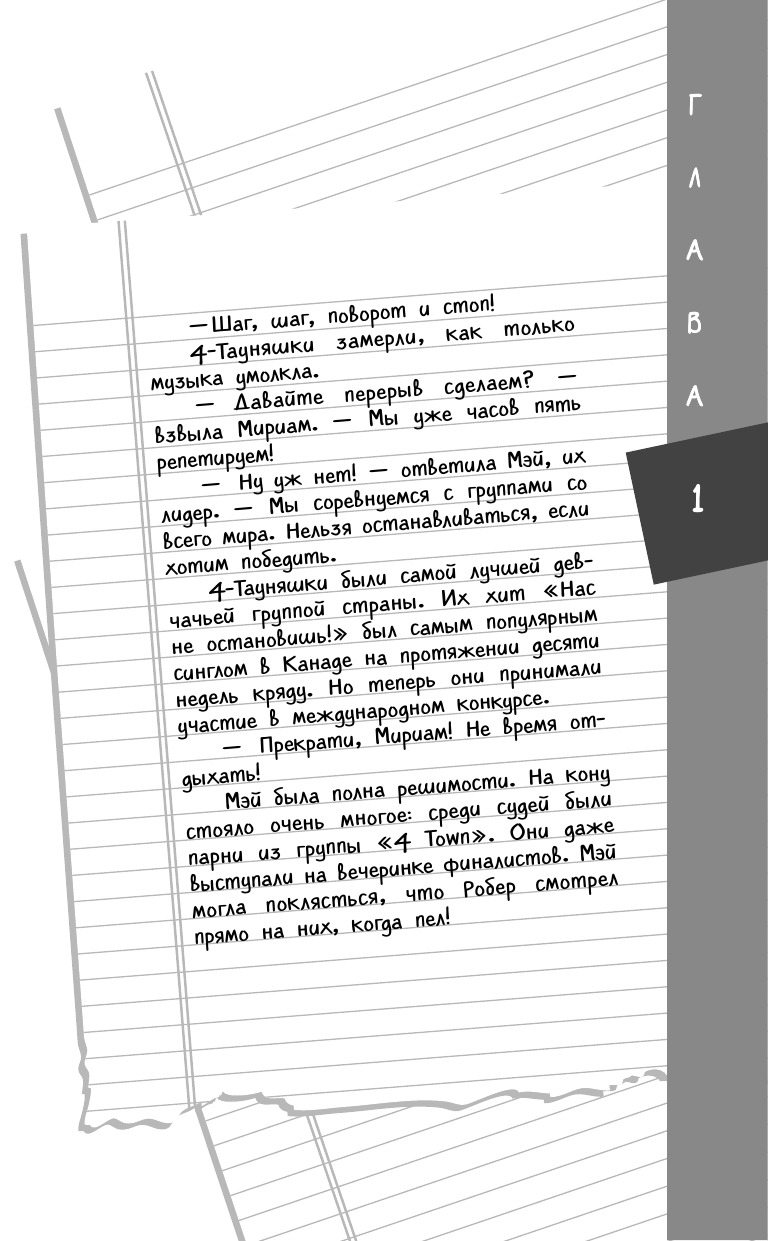 — Шаг, шаг, поворот и стоп!
4-Тауняшки замерли, как только
музыка умолкла.
— Давайте перерыв сделаем? —
взвыла Мириам. — Мы уже часов пять
репетируем!
— Ну уж нет! — ответила Мэй, их
лидер. — Мы соревнуемся с группами со
всего мира. Нельзя останавливаться, если
хотим победить.
4-Тауняшки были самой лучшей дев-
чачьей группой страны. Их хит «Нас
не остановишь!» был самым популярным
синглом в Канаде на протяжении десяти
недель кряду. Но теперь они принимали
участие в международном конкурсе.
— Прекрати, Мириам! Не время от-
дыхать!
Мэй была полна решимости. На кону
стояло очень многое: среди судей были
парни из группы «4 Town». Они даже
выступали на вечеринке финалистов. Мэй
могла поклясться, что Робер смотрел
прямо на них, когда пел!
Г
Л
А
В
А
1